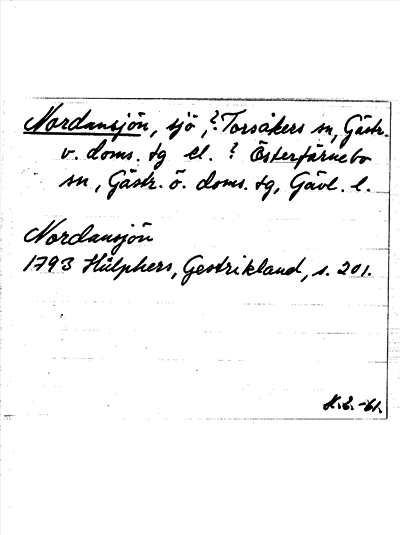 Nordansjön, sjö, ? Torsåkers sn, Gästr.
v. doms. tg el. ? Österfärnebo
sn, Gästr. ö. doms. tg, Gävl. l.
Nordansjön
1793 Hülphers, Gestrikland, s. 201.